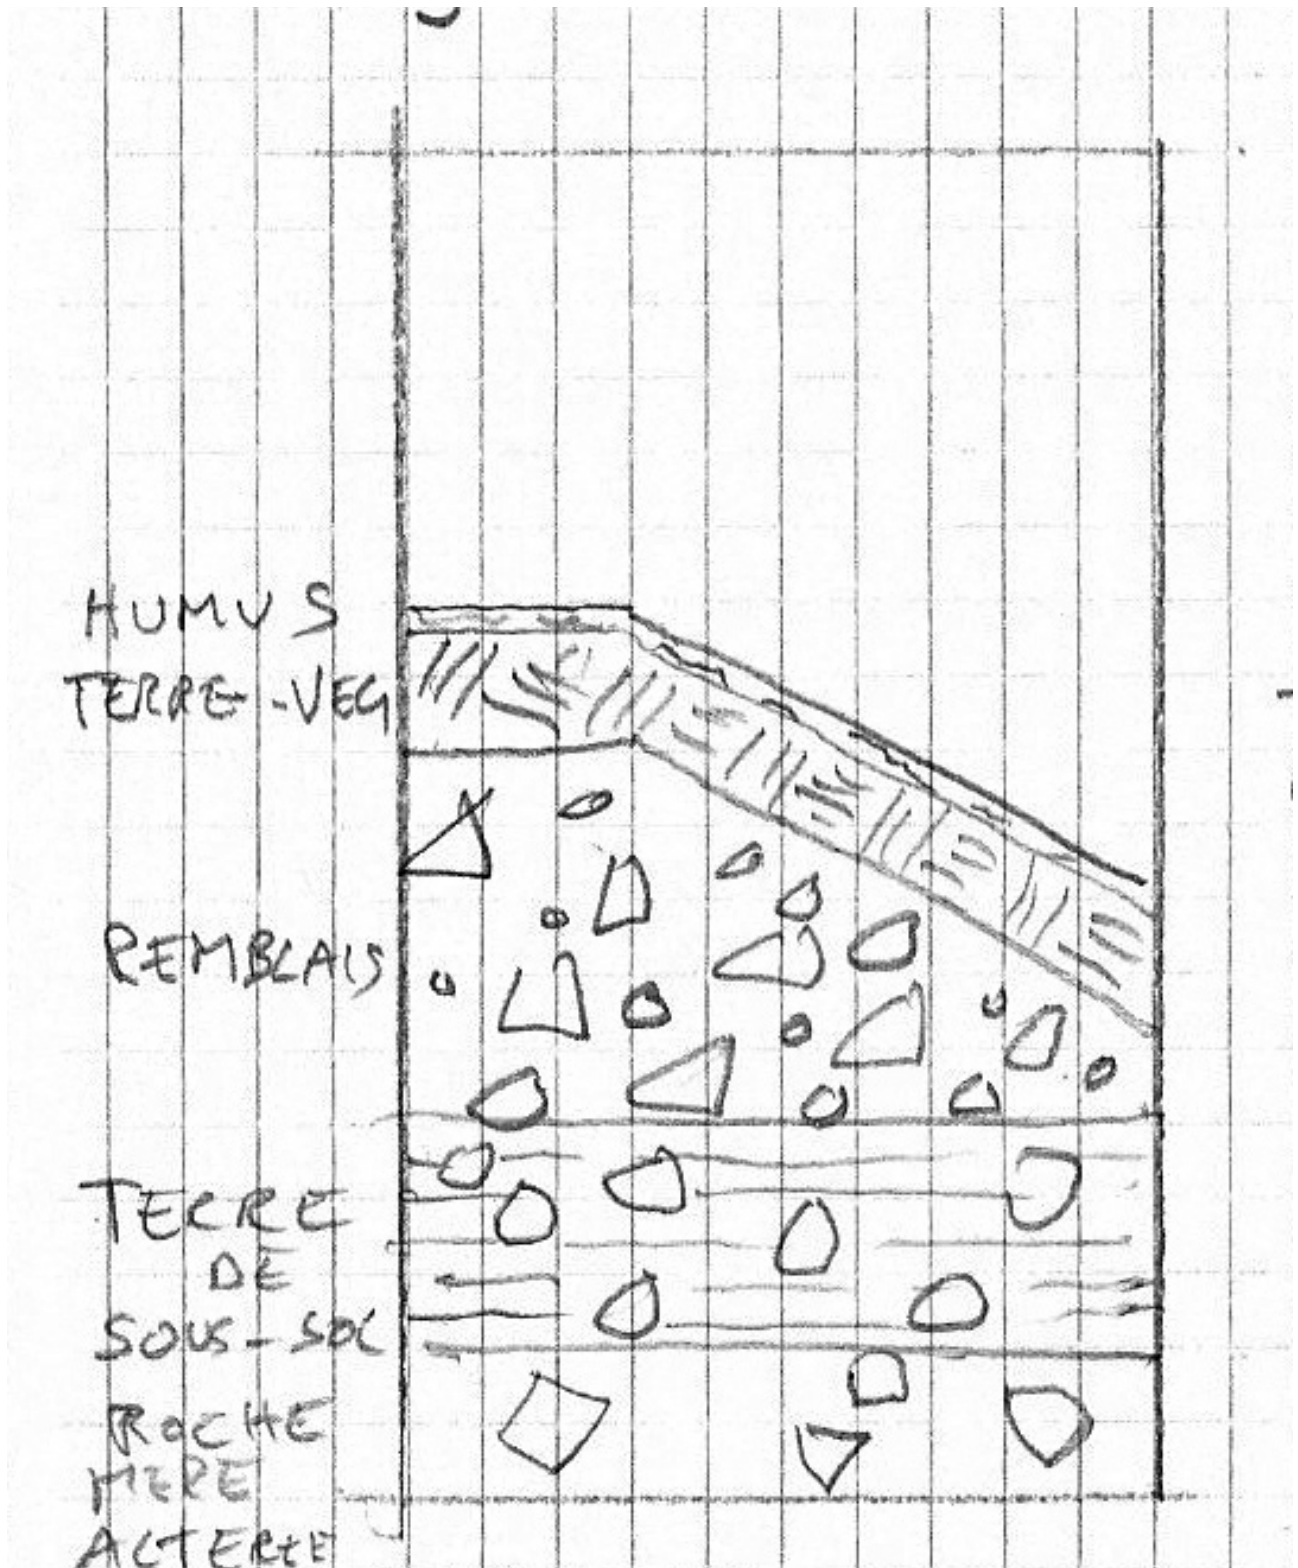 HUMUS
TERRE-VEG
REMBLAIS
TERRE
DE
SOUS-SOL
ROCHE
MERE
ALTEREE